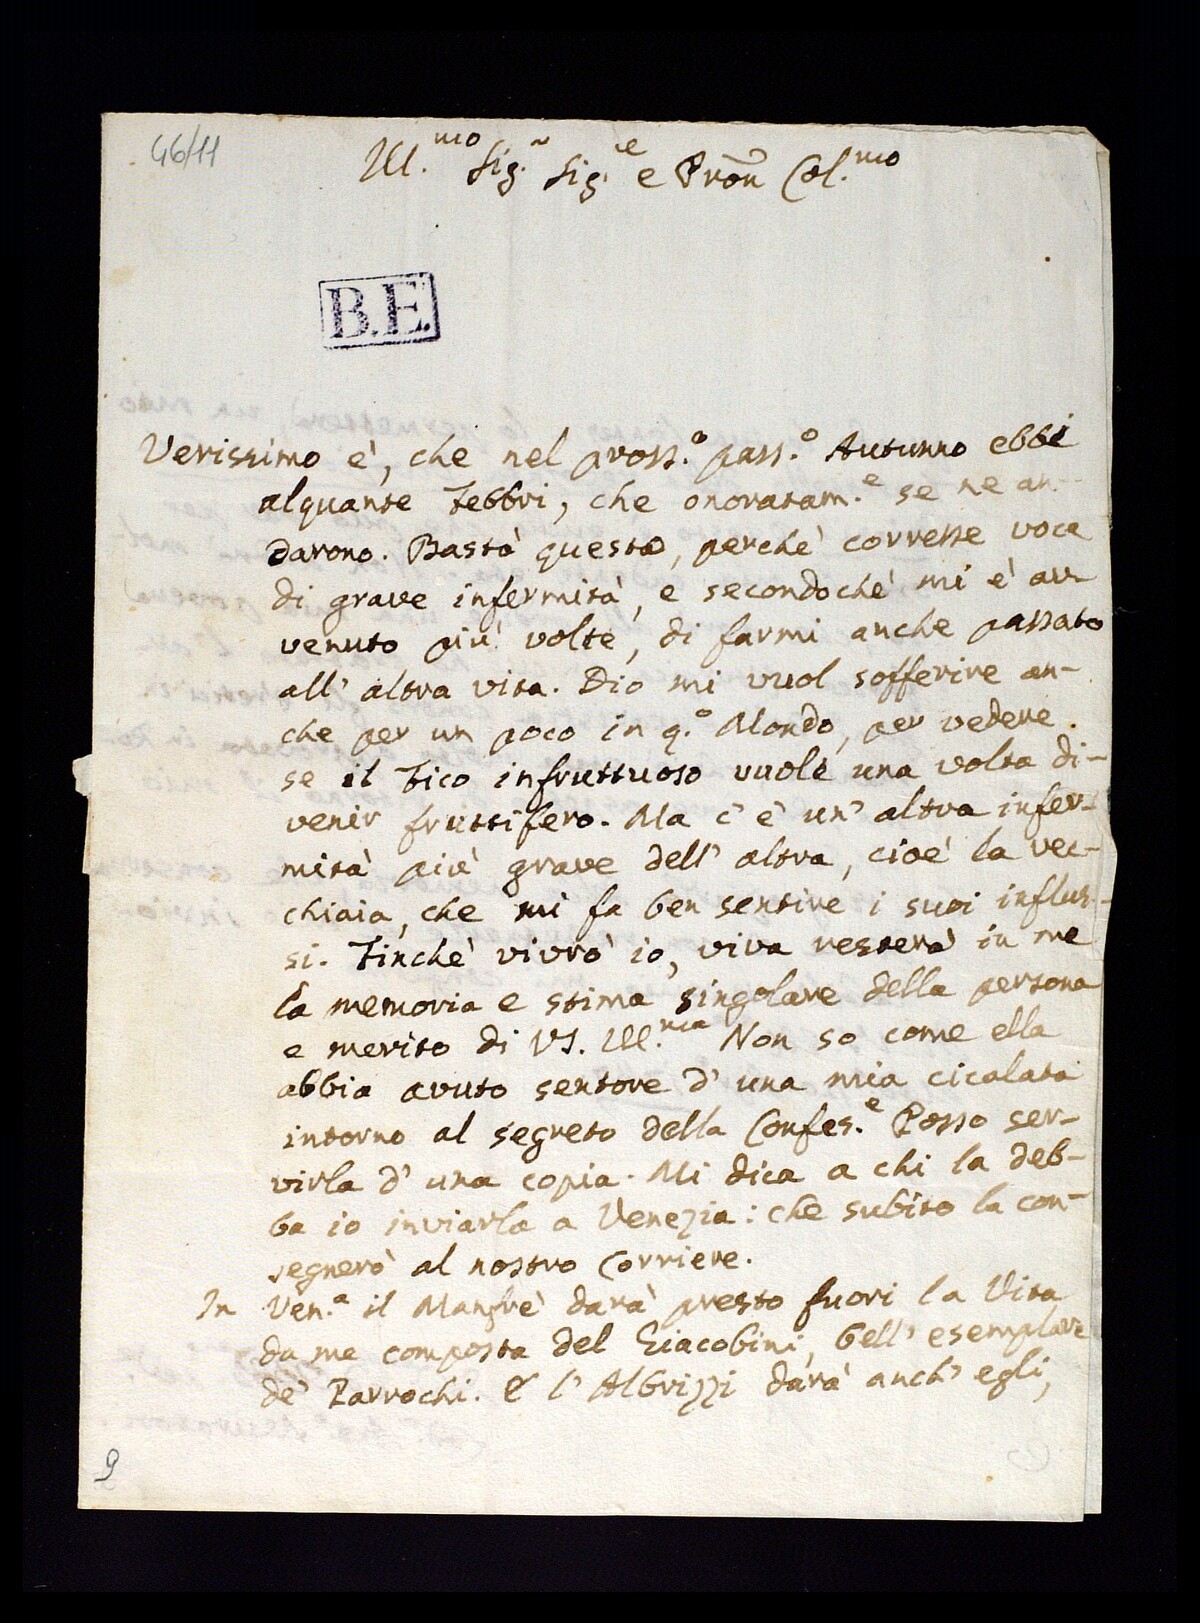 46/11
Ill.mo Sig.r Sig.re e Pron Col.mo
B.E.
Verissimo è, che nel pross.o pass.o Autunno ebbi
alquante Febbri, che onoratam.e se ne an-
darono. Bastò questo, perchè corresse voce
di grave infermità, e secondochè mi è av
venuto più volte, di farmi anche passato
all' altra vita. Dio mi vuol sofferire an-
che per un poco in q.o Mondo, per vedere
se il Fico infruttuoso vuole una volta di-
venir fruttifero. Ma c' è un' altra infer-
mità più grave dell' altra, cioè la vec-
chiaia, che mi fa ben sentire i suoi influs-
si. Finchè vivrò io, viva resterà in me
la memoria e stima singolare della persona
e merito di VS. Ill.ma Non so come ella
abbia avuto sentore d' una mia cicalata
intorno al segreto della Confes.e Posso ser-
virla d' una copia. Mi dica a chi la deb-
ba io inviarla a Venezia: che subito la con-
segnerò al nostro Corriere.
In Ven.a il Manfrè darà presto fuori la Vita
da me composta del Giacobini, bell' esemplare
de' Parrochi. E l' Albrizzi darà anch' egli,
9